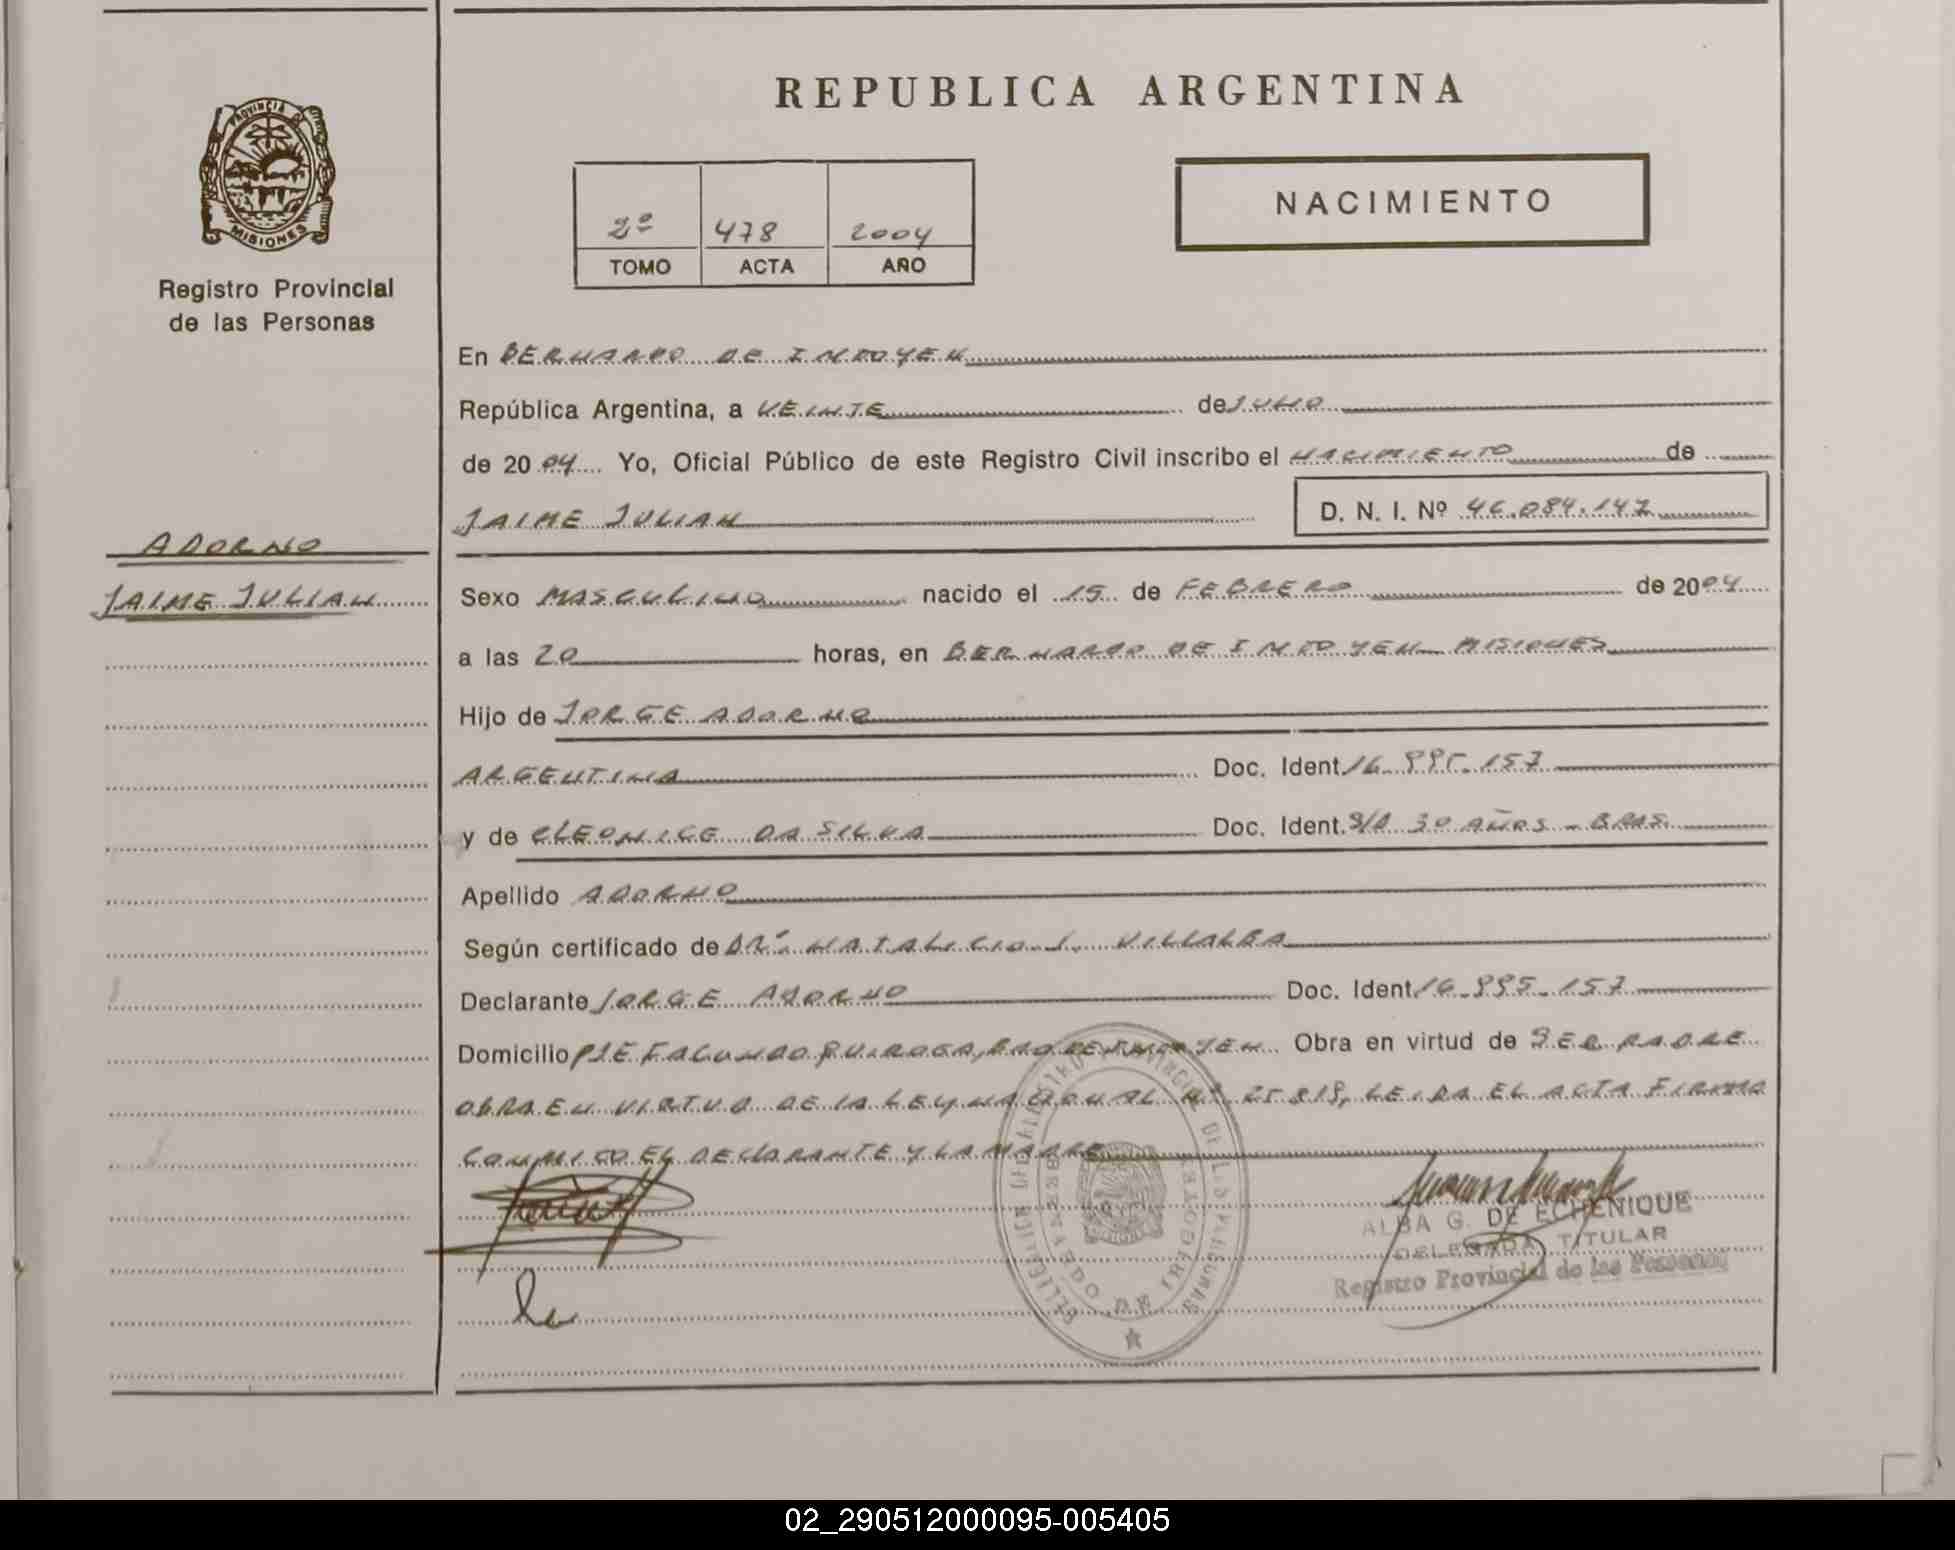 REPUBLICA ARGENTINA
PROVINCIA DE
MISIONES
Registro Provincial
de las Personas
2º 478 2004
TOMO ACTA AÑO
NACIMIENTO
En BERNARDO DE IRIGOYEN
República Argentina, a VEINTE de JULIO
de 2004 Yo, Oficial Público de este Registro Civil inscribo el NACIMIENTO de
JAIME JULIAN D. N. I. Nº 46.084.147
ADORNO
JAIME JULIAN
Sexo MASCULINO nacido el 15 de FEBRERO de 2004
a las 20 horas, en BERNARDO DE IRIGOYEN MISIONES
Hijo de JORGE ADORNO
ARGENTINA Doc. Ident. 16.995.157
y de CLEONICE DA SILVA Doc. Ident. S/D 30 AÑOS - BRAS.
Apellido ADORNO
Según certificado de DR. NATALICIO J. VILLALBA
Declarante JORGE ADORNO Doc. Ident. 16.995.157
Domicilio PJE FACUNDO QUIROGA, BDO DE IRIGOYEN Obra en virtud de SER PADRE
OBRA EN VIRTUD DE LA LEY NACIONAL Nº 25.819, LEIDA EL ACTA FIRMA
CONMIGO EL DECLARANTE Y LA MADRE
PROVINCIAL DE LAS PERSONAS
BERNARDO DE IRIGOYEN
ALBA G. DE ECHENIQUE
DELEGADA TITULAR
Registro Provincial de las Personas
02_290512000095-005405